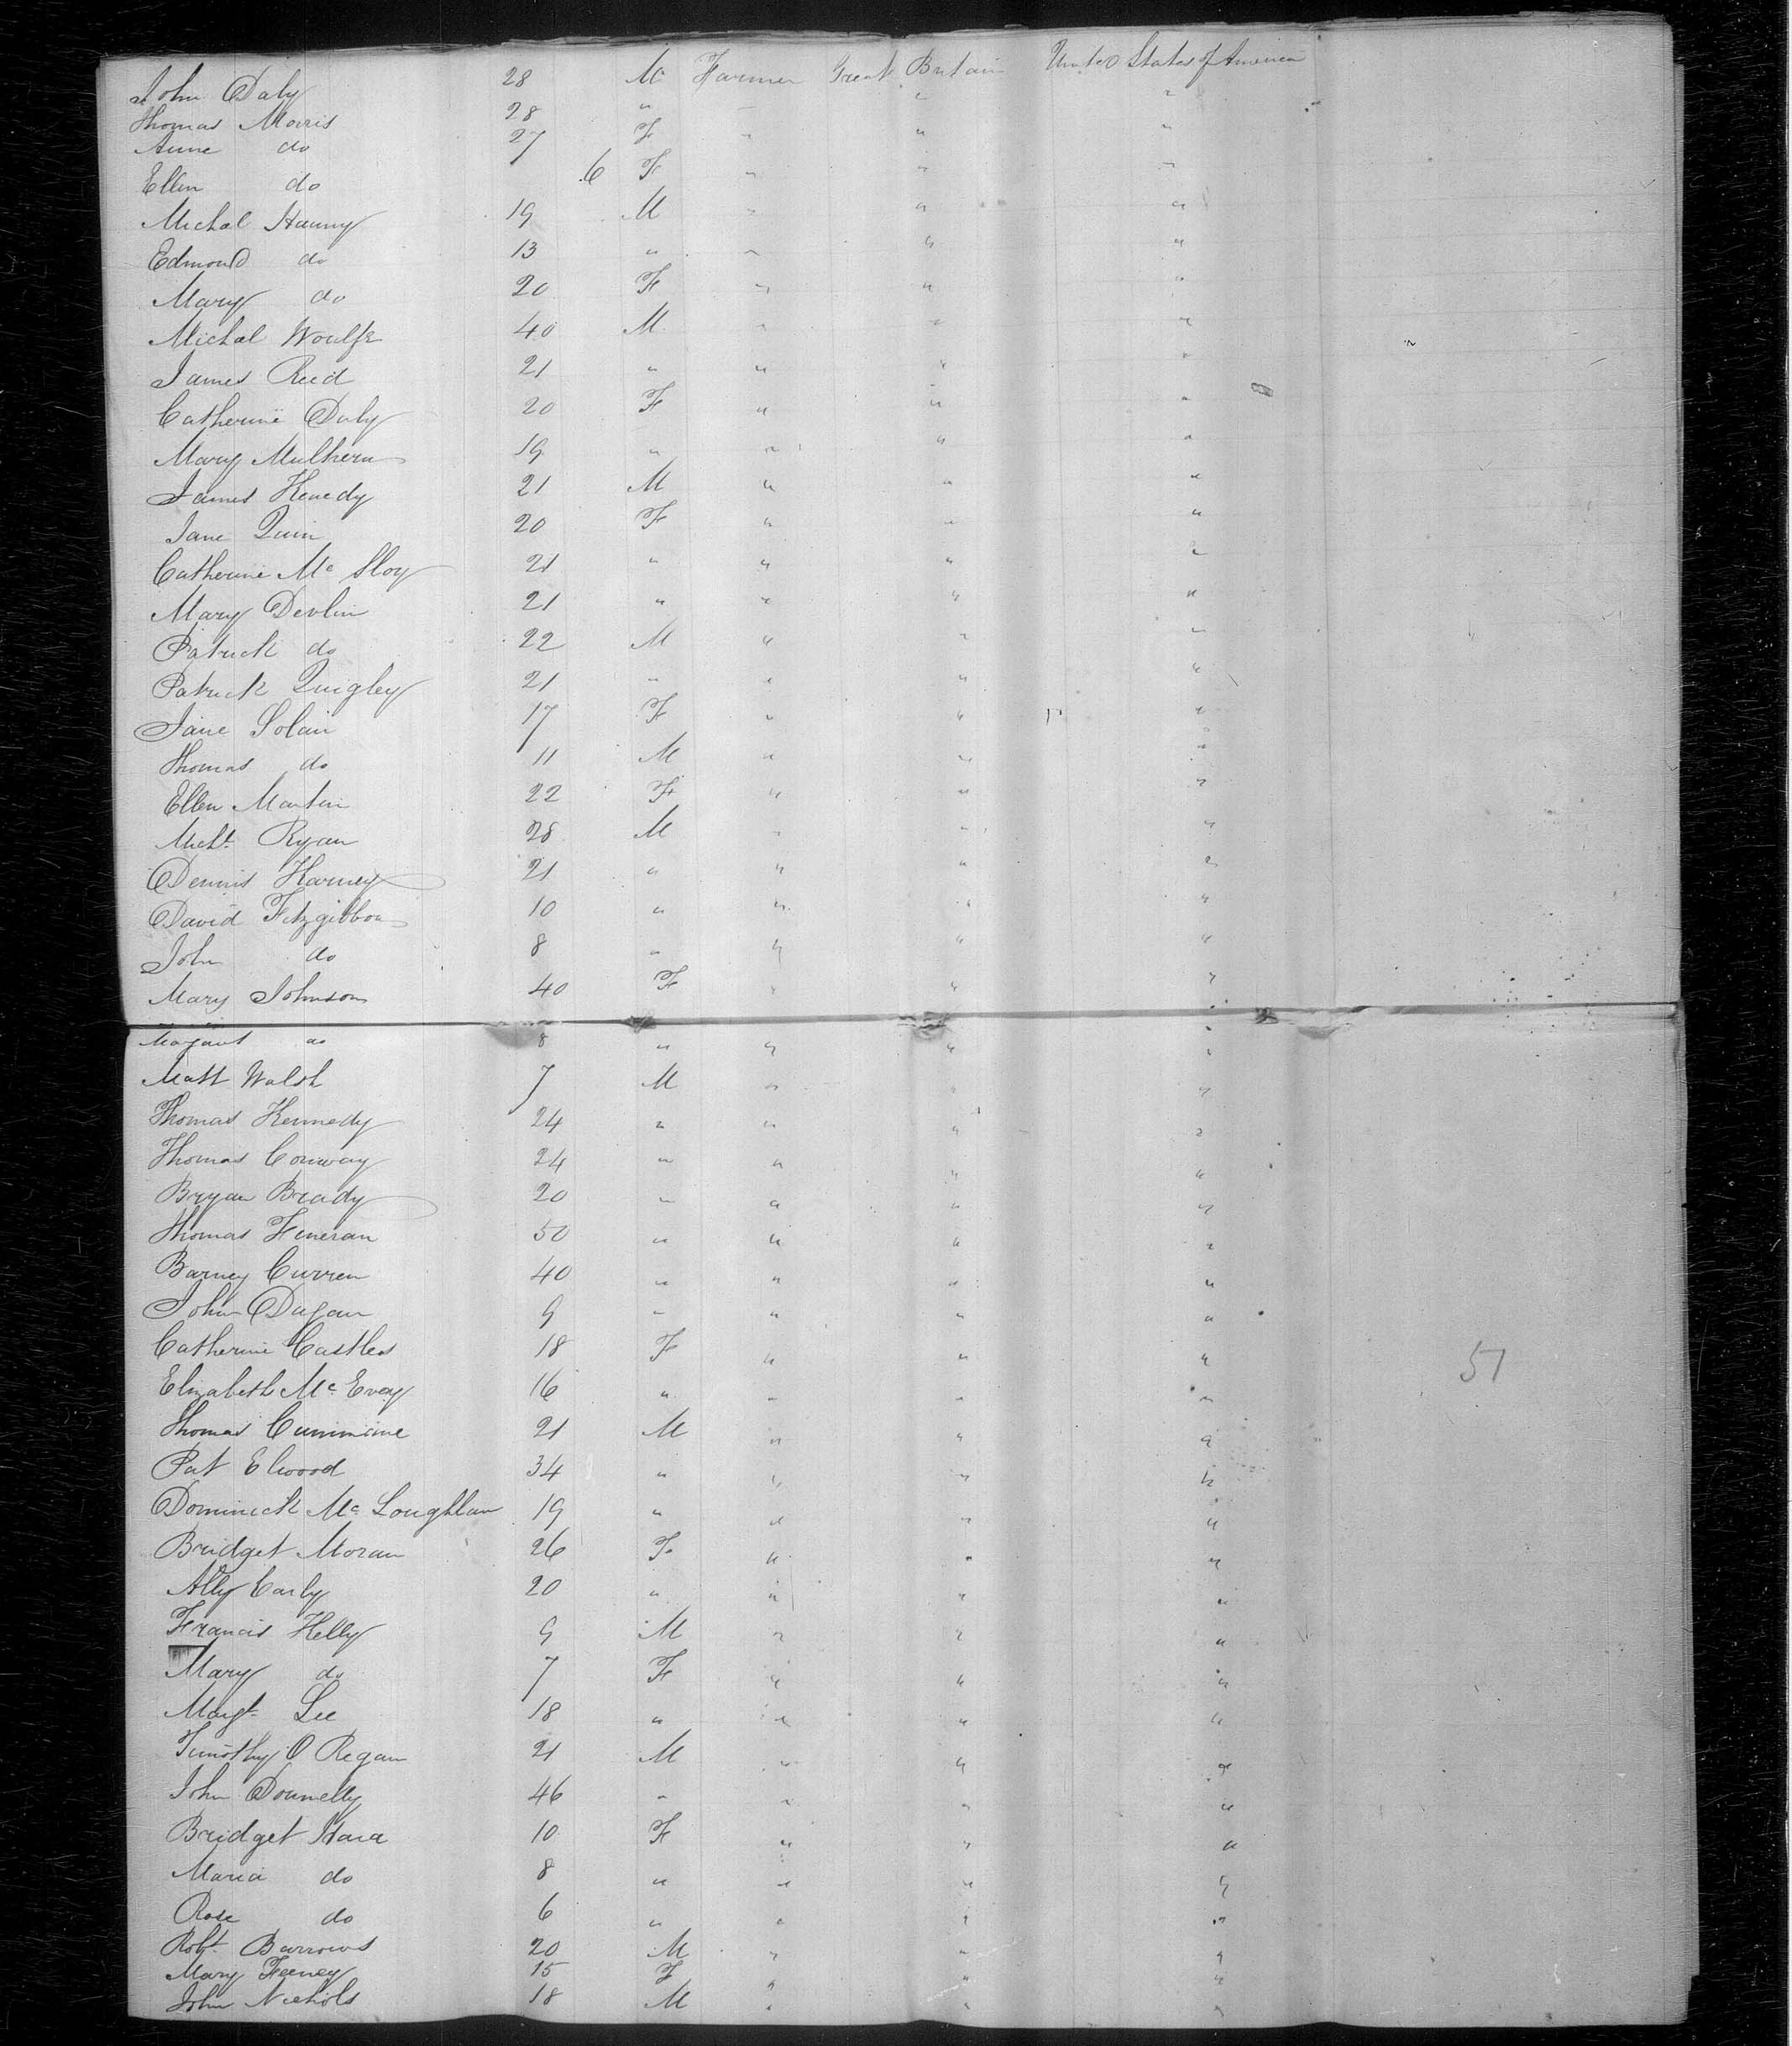 John Daly 28 M Farmer Great Britain United States of America
Thomas Morris 28 " " " "
Anne do 27 F " " "
Ellen do 6 F " " "
Michal Hanny 19 M " " "
Edmond do 13 " " " "
Mary do 20 F " " "
Michal Woulfe 40 M " " "
James Reid 21 " " " "
Catherine Daly 20 F " " "
Mary Mulhern 19 " " " "
James Kenedy 21 M " " "
Jane Quin 20 F " " "
Catherine Mc Sloy 21 " " " "
Mary Devlin 21 " " " "
Patrick do 22 M " " "
Patrick Quigley 21 " " " "
Jane Solain 17 F " " "
Thomas do 11 M " " "
Ellen Martin 22 F " " "
Michl. Ryan 28 M " " "
Dennis Harney 21 " " " "
David Fitzgibbon 10 " " " "
John do 8 " " " "
Mary Johnson 40 F " " "
do 8 " " " "
Matt Walsh 7 M " " "
Thomas Kennedy 24 " " " "
Thomas Conway 24 " " " "
Bryan Brady 20 " " " "
Thomas Fineran 50 " " " "
Barney Curren 40 " " " "
John Dugan 9 " " " "
Catherine Castles 18 F " " "
Elizabeth Mc Evoy 16 " " " "
51
Thomas Cummine 21 M " " "
Pat Elwood 34 " " " "
Dominick Mc Loughlan 19 " " " "
Bridget Moran 26 F " " "
Ally Early 20 " " " "
Francis Kelly 9 M " " "
Mary do 7 F " " "
Margt. Lee 18 " " " "
Timothy O Regan 21 M " " "
John Donnelly 46 " " " "
Bridget Hara 10 F " " "
Maria do 8 " " " "
Rose do 6 " " " "
Robt. Burrows 20 M " " "
Mary Feeney 15 F " " "
John Nichols 18 M " " "